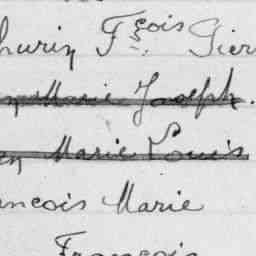 hurin Fçois Pier
n Marie Joseph.
en Marie Louis
ancois Marie
François